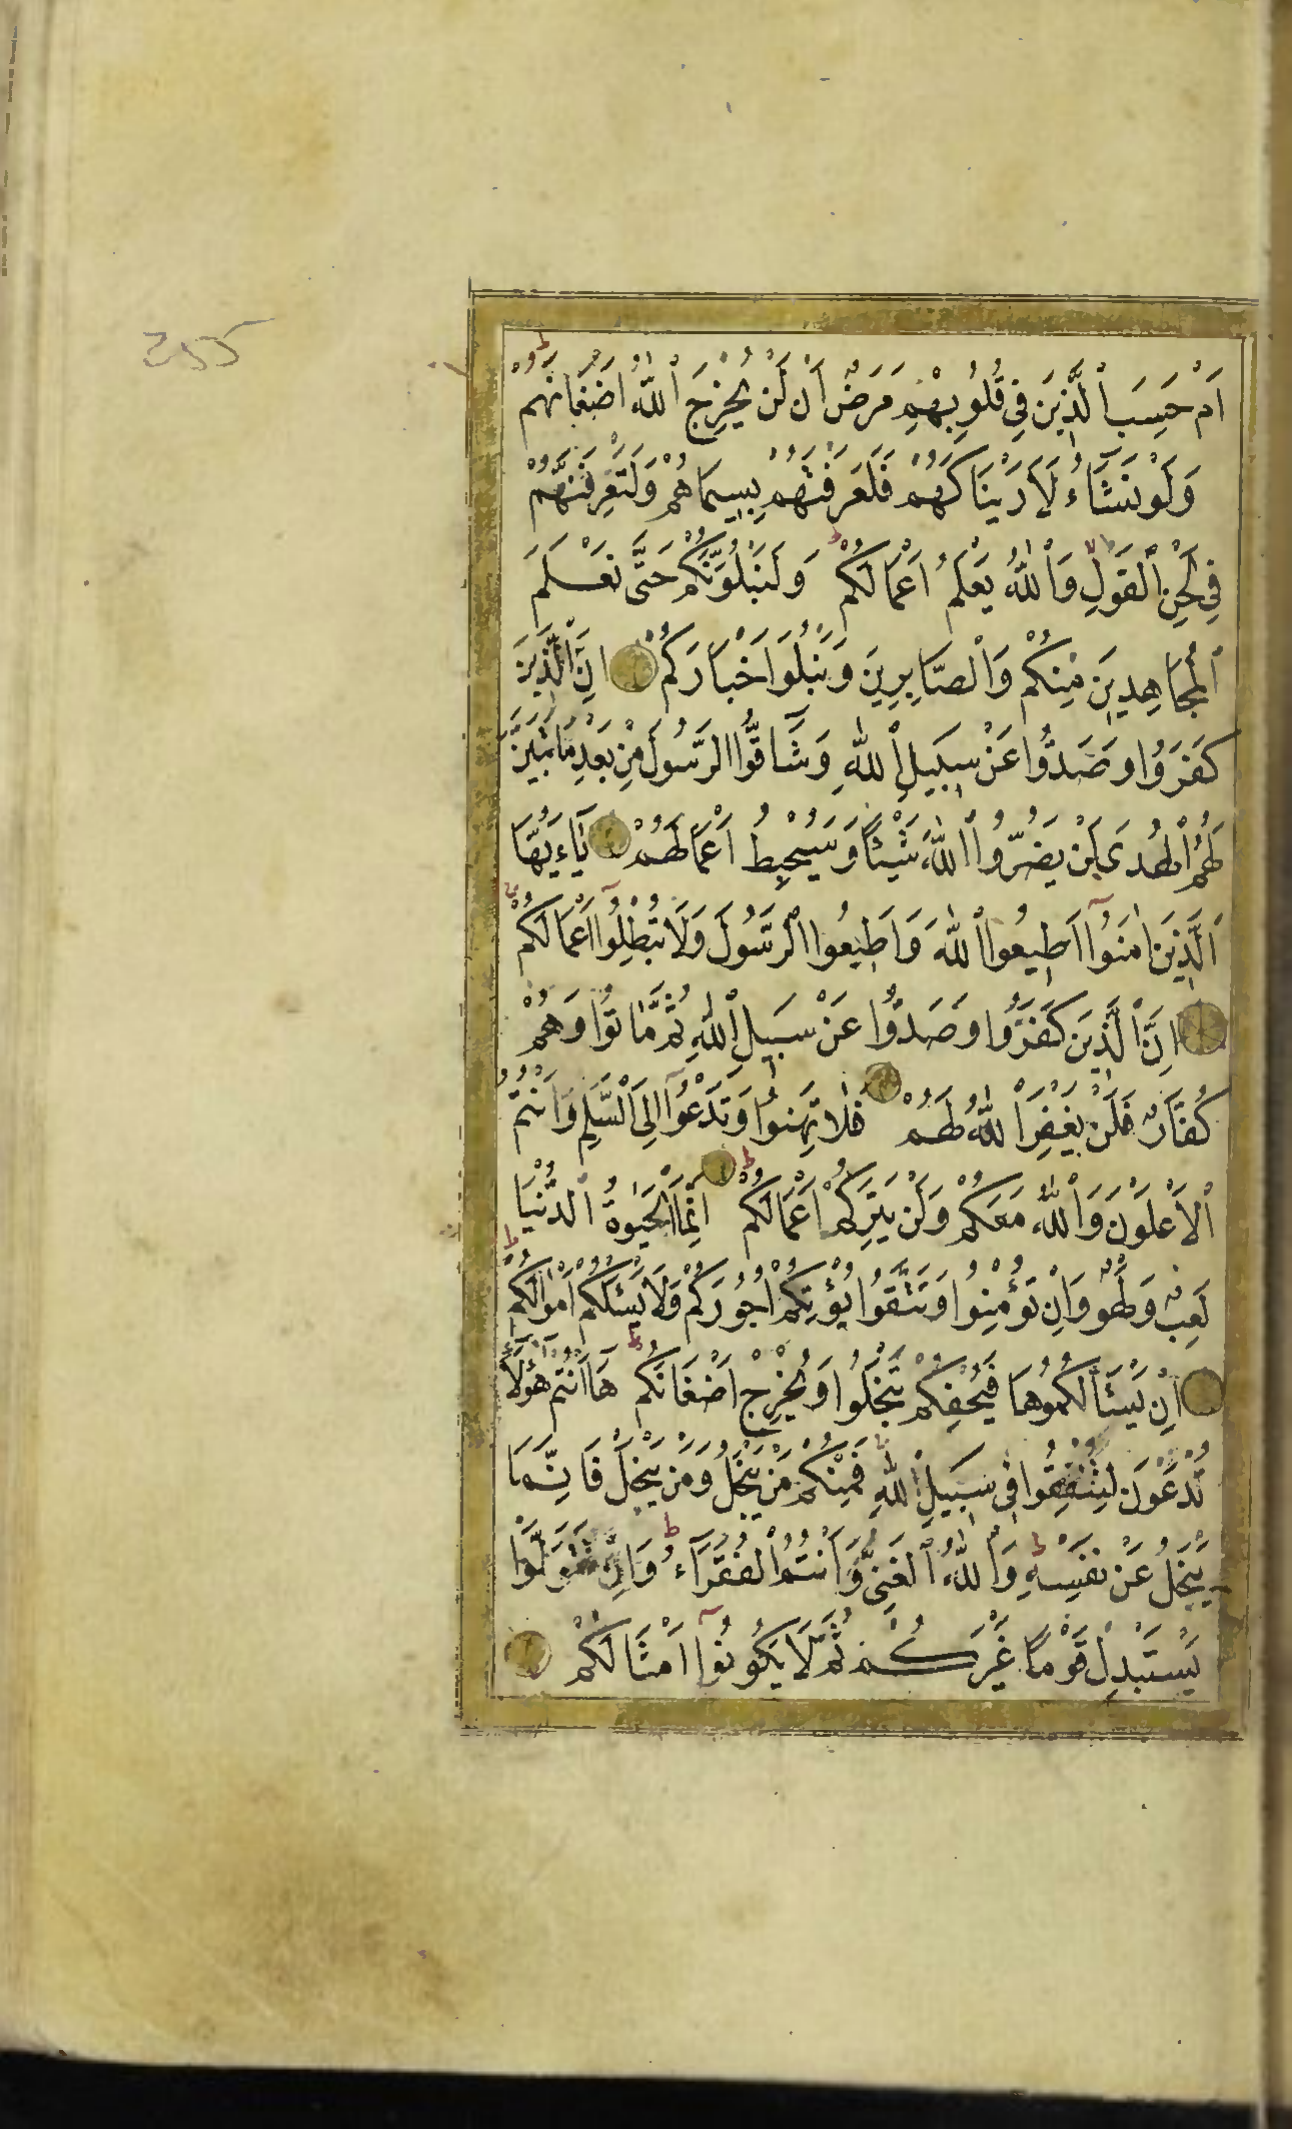 اَمْ حَسِبَ ٱلَّذِينَ فِي قُلُوبِهِمْ مَرَضٌ اَنْ لَنْ يُخْرِجَ ٱللّٰهُ اَضْغَانَهُمْ
وَلَوْ نَشَٓاءُ لَاَرَيْنَاكَهُمْ فَلَعَرَفْتَهُمْ بِسِيمَاهُمْ وَلَتَعْرِفَنَّهُمْ
فِي لَحْنِ ٱلْقَوْلِ وَٱللّٰهُ يَعْلَمُ اَعْمَالَكُمْ وَلَنَبْلُوَنَّكُمْ حَتَّى نَعْلَمَ
ٱلْمُجَاهِدِينَ مِنْكُمْ وَٱلصَّابِرِينَ وَنَبْلُوَا اَخْبَارَكُمْ اِنَّ ٱلَّذِينَ
كَفَرُوا وَصَدُّوا عَنْ سَبِيلِ ٱللّٰهِ وَشَٓاقُّوا ٱلرَّسُولَ مِنْ بَعْدِ مَا تَبَيَّنَ
لَهُمُ ٱلْهُدَى لَنْ يَضُرُّوا ٱللّٰهَ شَيْئًا وَسَيُحْبِطُ اَعْمَالَهُمْ يَٓاءَيُّهَا
ٱلَّذِينَ اٰمَنُٓوا اَطِيعُوا ٱللّٰهَ وَاَطِيعُوا ٱلرَّسُولَ وَلَا تُبْطِلُٓوا اَعْمَالَكُمْ
اِنَّ ٱلَّذِينَ كَفَرُوا وَصَدُّوا عَنْ سَبِيلِ ٱللّٰهِ ثُمَّ مَاتُوا وَهُمْ
كُفَّارٌ فَلَنْ يَغْفِرَ ٱللّٰهُ لَهُمْ فَلَا تَهِنُوا وَتَدْعُٓوا اِلَى ٱلسَّلْمِ وَاَنْتُمُ
ٱلْاَعْلَوْنَ وَٱللّٰهُ مَعَكُمْ وَلَنْ يَتِرَكُمْ اَعْمَالَكُمْ اِنَّمَا ٱلْحَيٰوةُ ٱلدُّنْيَا
لَعِبٌ وَلَهْوٌ وَاِنْ تُؤْمِنُوا وَتَتَّقُوا يُؤْتِكُمْ اُجُورَكُمْ وَلَا يَسْئَلْكُمْ اَمْوَالَكُمْ
اِنْ يَسْئَلْكُمُوهَا فَيُحْفِكُمْ تَبْخَلُوا وَيُخْرِجْ اَضْغَانَكُمْ هَٓااَنْتُمْ هٰٓؤُلَٓاءِ
تُدْعَوْنَ لِتُنْفِقُوا فِي سَبِيلِ ٱللّٰهِ فَمِنْكُمْ مَنْ يَبْخَلُ وَمَنْ يَبْخَلْ فَاِنَّمَا
يَبْخَلُ عَنْ نَفْسِهِ وَٱللّٰهُ ٱلْغَنِيُّ وَاَنْتُمُ ٱلْفُقَرَٓاءُ وَاِنْ تَتَوَلَّوْا
يَسْتَبْدِلْ قَوْمًا غَيْرَكُمْ ثُمَّ لَا يَكُونُٓوا اَمْثَالَكُمْ